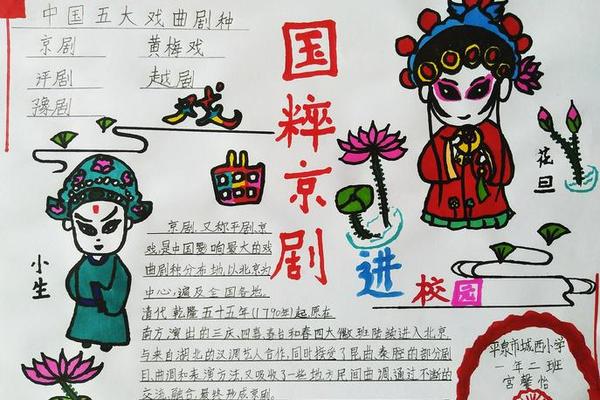 中国五大戏曲剧种
京剧 黄梅戏
评剧 越剧
豫剧
戏
国粹京剧
进校园
花旦
小生
京剧,又称平剧,京
戏,是中国影响最大的戏
曲剧种分布地,以北京为
中心,遍及全国各地.
清代乾隆五十五年(1790年)起,原在
南方演出的三庆,四喜,春台和春四大徽班陆续进入北京,
与来自湖北的汉调艺人合作,同时接受了昆曲,秦腔的部分剧
目,曲调和表演方法,又吸收了一些地方民间曲调,通过不断的
交流,融合,最终形成京剧.
平泉市城西小学
一年二班
宫馨怡